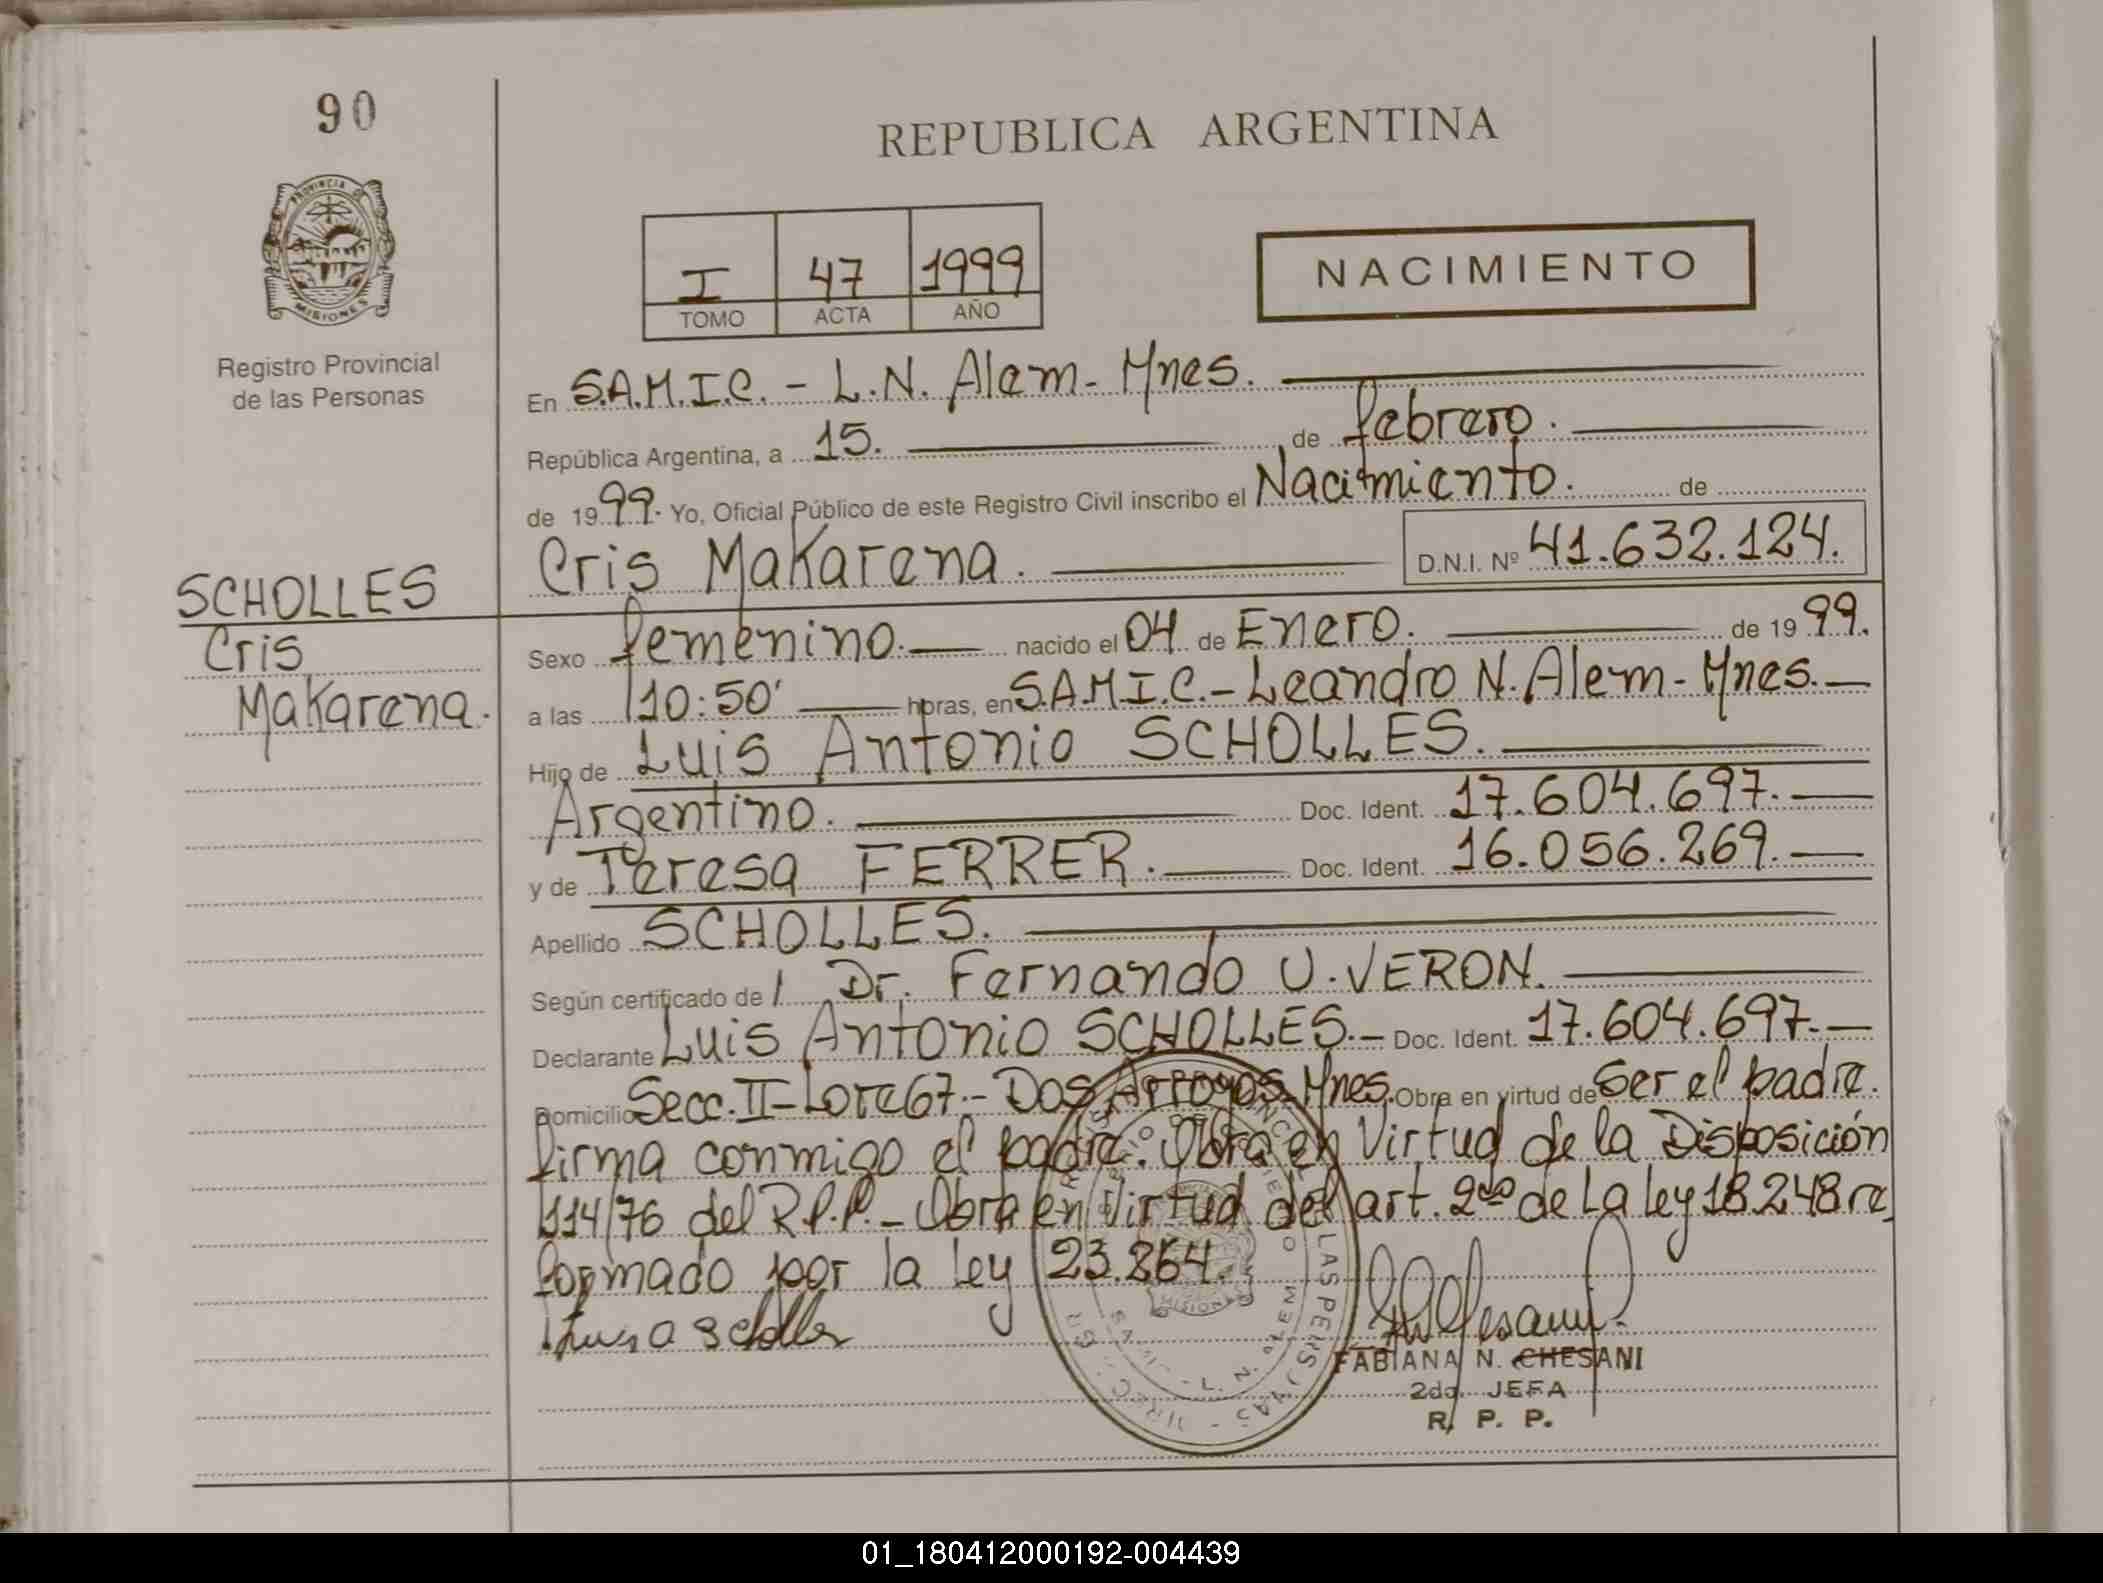 90
REPUBLICA ARGENTINA
PROVINCIA DE
MISIONES
Registro Provincial
de las Personas
I 47 1999
TOMO ACTA AÑO
NACIMIENTO
En S.A.M.I.C. - L.N. Alem - Mnes.
República Argentina, a 15. de febrero.
de 1999. Yo, Oficial Público de este Registro Civil inscribo el Nacimiento. de
Cris Makarena. D.N.I. Nº 41.632.124.
SCHOLLES
Cris
Makarena.
Sexo femenino. nacido el 04 de Enero. de 1999.
a las 10:50' horas, en S.A.M.I.C. - Leandro N. Alem - Mnes.
Hijo de Luis Antonio SCHOLLES.
Argentino. Doc. Ident. 17.604.697.
y de Teresa FERRER. Doc. Ident. 16.056.269.
Apellido SCHOLLES.
Según certificado de Dr. Fernando U. VERON.
Declarante Luis Antonio SCHOLLES. Doc. Ident. 17.604.697.
Domicilio Secc. II - Lote 67 - Dos Arroyos. Mnes. Obra en virtud de Ser el padre.
firma conmigo el padre. Obra en Virtud de la Disposición
114/76 del R.P.P. - Obra en Virtud del art. 2do de La ley 18.248 re
formado por la ley 23.264.
FABIANA N. CHESANI
2da. JEFA
R. P. P.
01_180412000192-004439